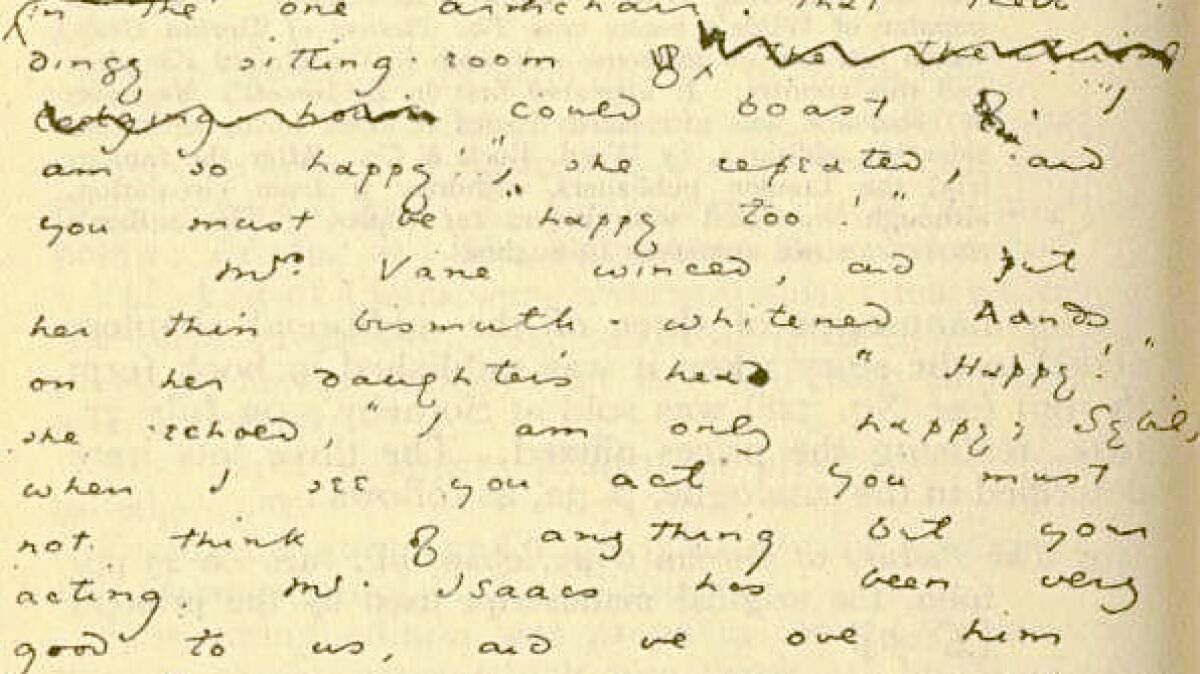 in the one armchair that their
dingy sitting-room of
lodging house could boast of. "I
am so happy!", she repeated, "and
you must be happy too!"
Mrs. Vane winced, and put
her thin bismuth-whitened hands
on her daughter's head "Happy!"
she echoed, "I am only happy, Sybil,
when I see you act. You must
not think of anything but your
acting. Mr. Isaacs has been very
good to us, and we owe him